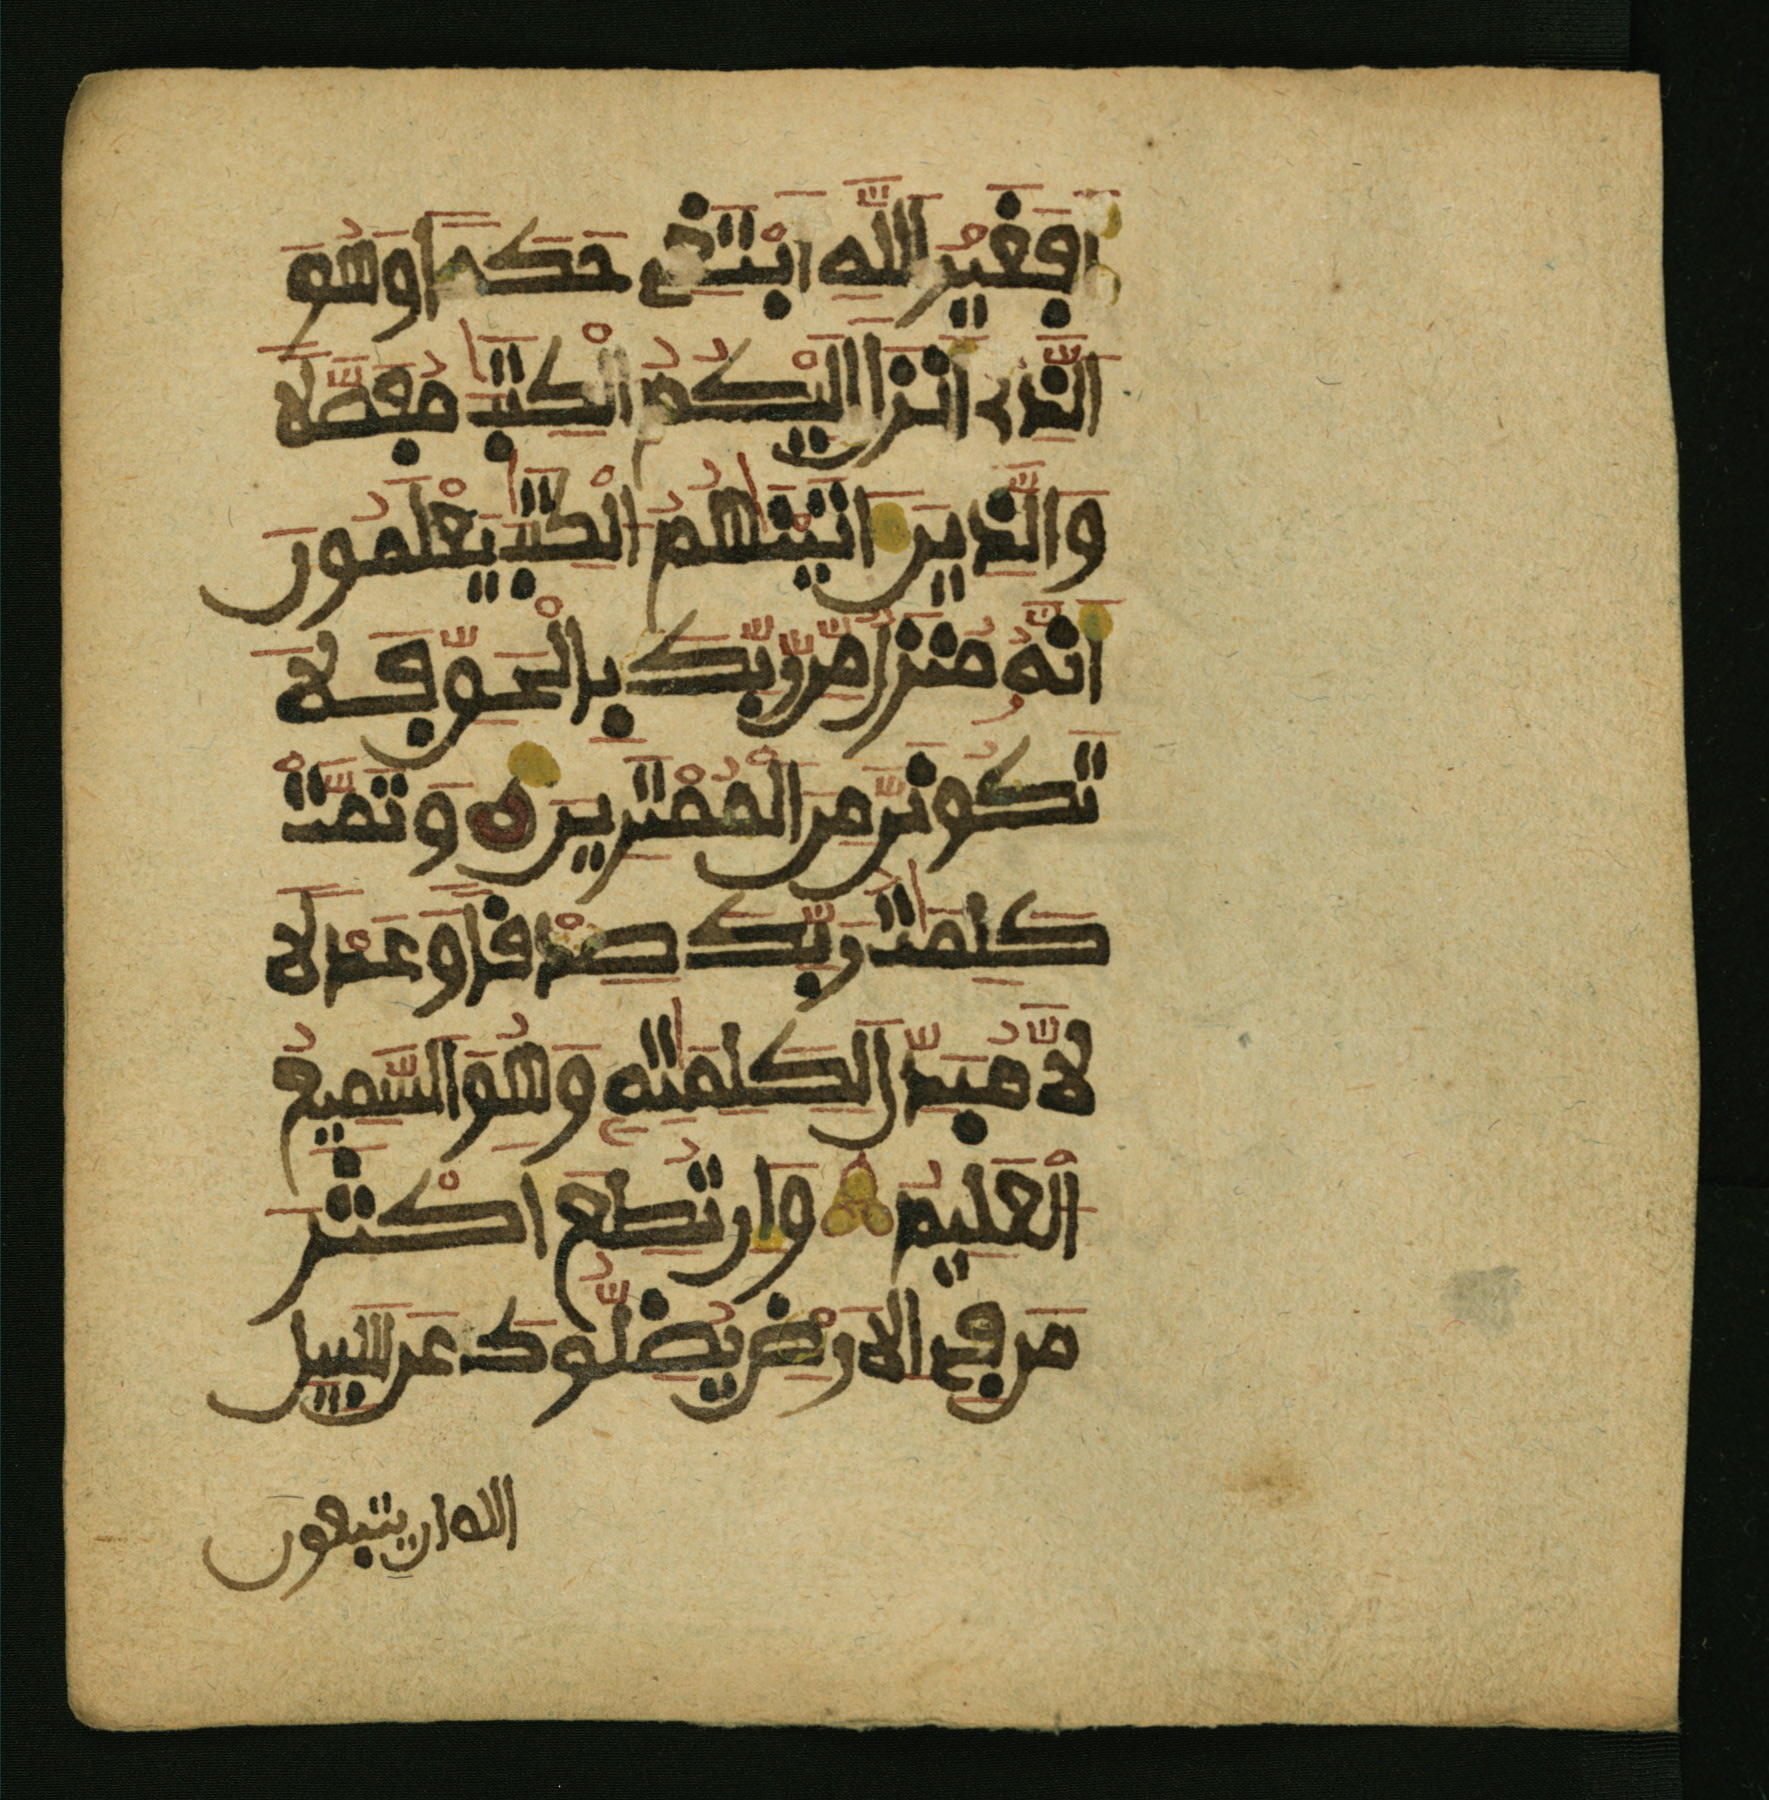 اَفَغَيْرَ اللَّهِ اَبْتَغِى حَكَماً وَهُوَ
الَّذِى اَنزَلَ اِلَيْكُمُ الْكِتَٰبَ مُفَصَّلاً
وَالَّذِينَ اتَيْنَٰهُمُ الْكِتَٰبَ يَعْلَمُونَ
اَنَّهُ مُنزَلٌ مِّن رَّبِّكَ بِالْحَقِّ فَلَا
تَكُونَنَّ مِنَ الْمُمْتَرِينَ وَتَمَّتْ
كَلِمَٰتُ رَبِّكَ صِدْقاً وَعَدْلاً
لَّا مُبَدِّلَ لِكَلِمَٰتِهِ وَهُوَ السَّمِيعُ
الْعَلِيمُ وَاِن تُطِعَ اَكْثَرَ
مَن فِى الَارْضِ يُضِلُّوكَ عَن سَبِيلِ
الله ان يتبعون